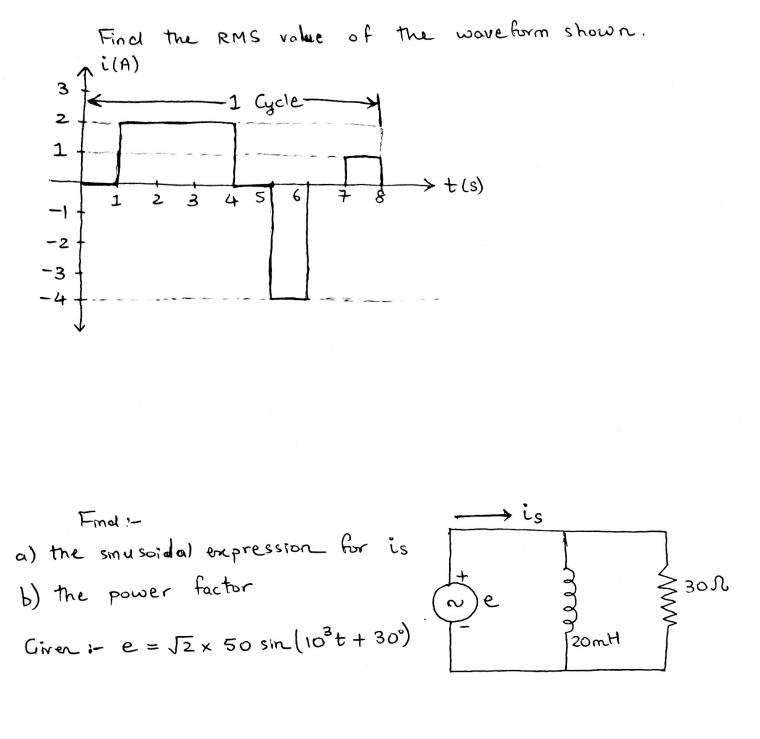 Find the RMS value of the waveform shown.
i(A)
3
1 Cycle
2
1
t(s)
1 2 3 4 5 6 7 8
-1
-2
-3
-4
is
Find :-
a) the sinusoidal expression for is
b) the power factor
+
~ e
-
30Ω
20mH
Given :- e = √2 x 50 sin(10³t + 30°)